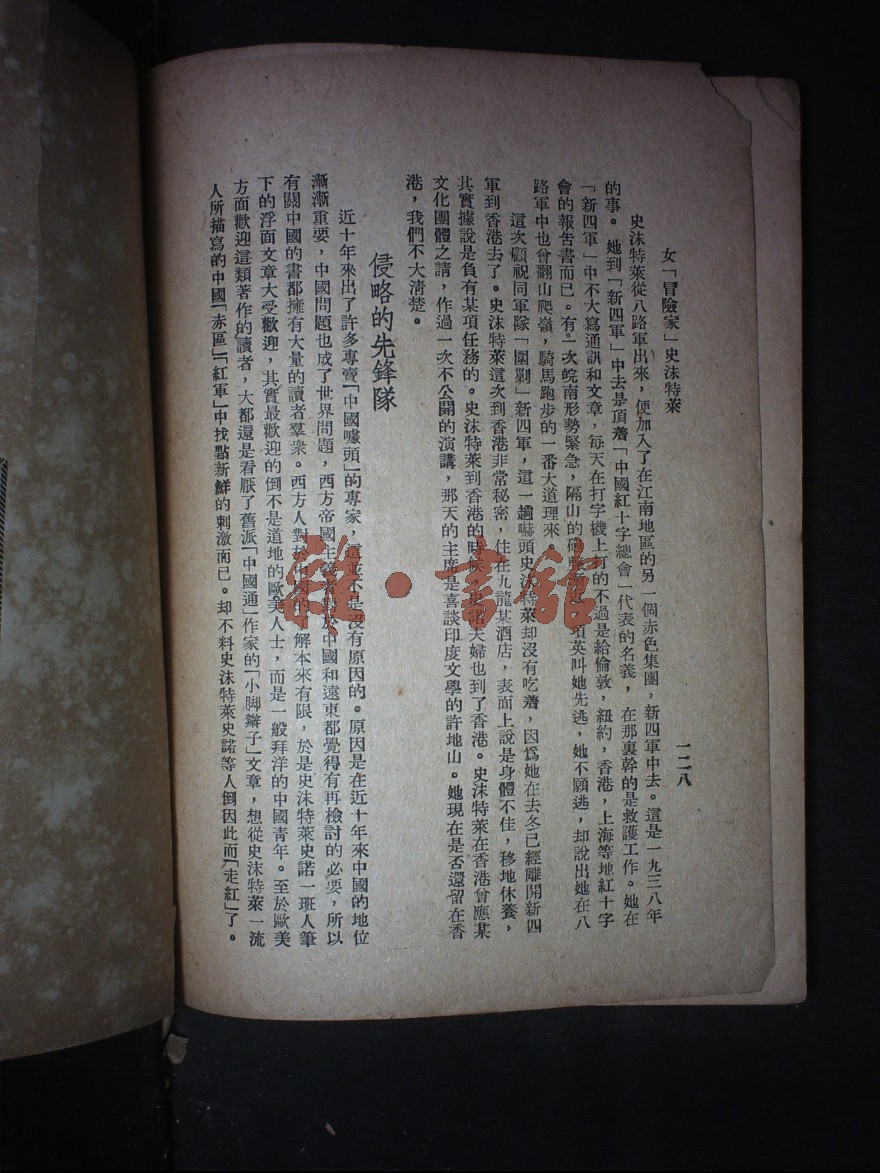 女「冒險家」史沫特萊
一二八
史沫特萊從八路軍出來，便加入了在江南地區的另一個赤色集團，新四軍中去。這是一九三八年
的事。她到「新四軍」中去是頂着「中國紅十字總會」代表的名義，在那裏幹的是救護工作。她在
「新四軍」中不大寫通訊和文章，每天在打字機上打的不過是給倫敦，紐約，香港，上海等地紅十字
會的報告書而已。有一次皖南形勢緊急，隔山的砲 項英叫她先逃，她不願逃，却說出她在八
路軍中也曾翻山爬嶺，騎馬跑步的一番大道理來
這次顧祝同軍隊「圍剿」新四軍，這一趟嚇頭史沫特萊却沒有吃着，因爲她在去冬已經離開新四
軍到香港去了。史沫特萊這次到香港非常秘密，住在九龍某酒店，表面上說是身體不佳，移地休養，
其實據說是負有某項任務的。史沫特萊到香港的時候，史諾夫婦也到了香港。史沫特萊在香港曾應某
文化團體之請，作過一次不公開的演講，那天的主席是喜談印度文學的許地山。她現在是否還留在香
港，我們不大清楚。
侵略的先鋒隊
近十年來出了許多專賣「中國噱頭」的專家，這並不是沒有原因的。原因是在近十年來中國的地位
漸漸重要，中國問題也成了世界問題，西方帝國主義者對於中國和遠東都覺得有再檢討的必要，所以
有關中國的書都擁有大量的讀者羣衆。西方人對於中國的了解本來有限，於是史沫特萊史諾一班人筆
下的浮面文章大受歡迎，其實最歡迎的倒不是道地的歐美人士，而是一般拜洋的中國青年。至於歐美
方面歡迎這類著作的讀者，大都還是看厭了舊派「中國通」作家的「小脚辮子」文章，想從史沫特萊一流
人所描寫的中國「赤區」「紅軍」中找點新鮮的刺激而已。却不料史沫特萊史諾等人倒因此而「走紅」了。